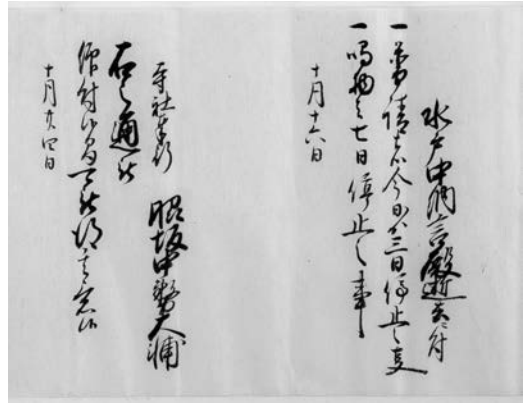 水戸中納言殿逝去ニ付
一普請者今日ゟ三日停止之事
一鳴物者七日停止之事
十月十六日
寺社奉行 脇坂中務大輔
右之通被
仰付候間可被得其意候
十月廿四日